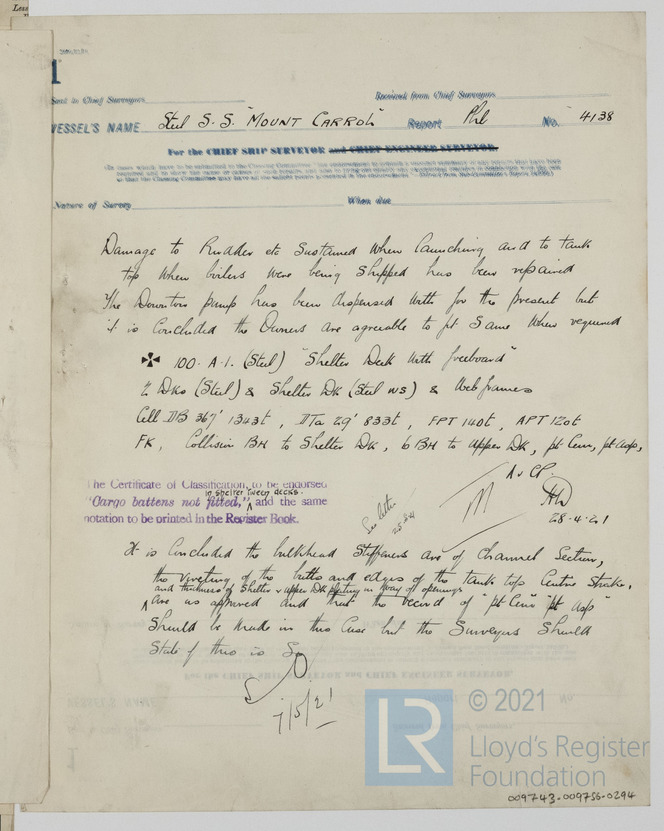 Sent to Chief Surveyors
Received from Chief Surveyors
VESSEL'S NAME Steel S.S. "MOUNT CARROLL" Report Phl No. 4138
For the CHIEF SHIP SURVEYOR and CHIEF ENGINEER SURVEYOR.
Nature of Survey When due
Damage to Rudder etc Sustained when launching and to tank
top when boilers were being shipped has been repaired
The Downton pump has been dispensed with for the present but
it is concluded the Owners are agreeable to fit same when required
✠ 100.A.1. (Steel) "Shelter Deck with freeboard"
2 Dks (Steel) & Shelter Dk (Steel ws) & Web frames
Cell DB 367' 1343t, DTa 29' 833t, FPT 140t, APT 120t
FK, Collision BH to Shelter Dk, 6 BH to Upper Dk, pt Cem, pt Asp,
A & CP
The Certificate of Classification, to be endorsed
in shelter tween decks.
"Cargo battens not fitted," and the same
notation to be printed in the Register Book.
See letter
28-4-21
It is concluded the bulkhead stiffeners are of Channel Section,
the riveting of the butts and edges of the tank top Centre Strake,
and thickness of Shelter & upper Dk plating in way of openings
are as approved and that the record of "pt Cem" "pt Asp"
Should be made in this Case but the Surveyors should
State if this is So
7/5/21
For the CHIEF SHIP SURVEYOR and CHIEF ENGINEER SURVEYOR.
LR
© 2021
Lloyd's Register
Foundation
009743-009756-0294